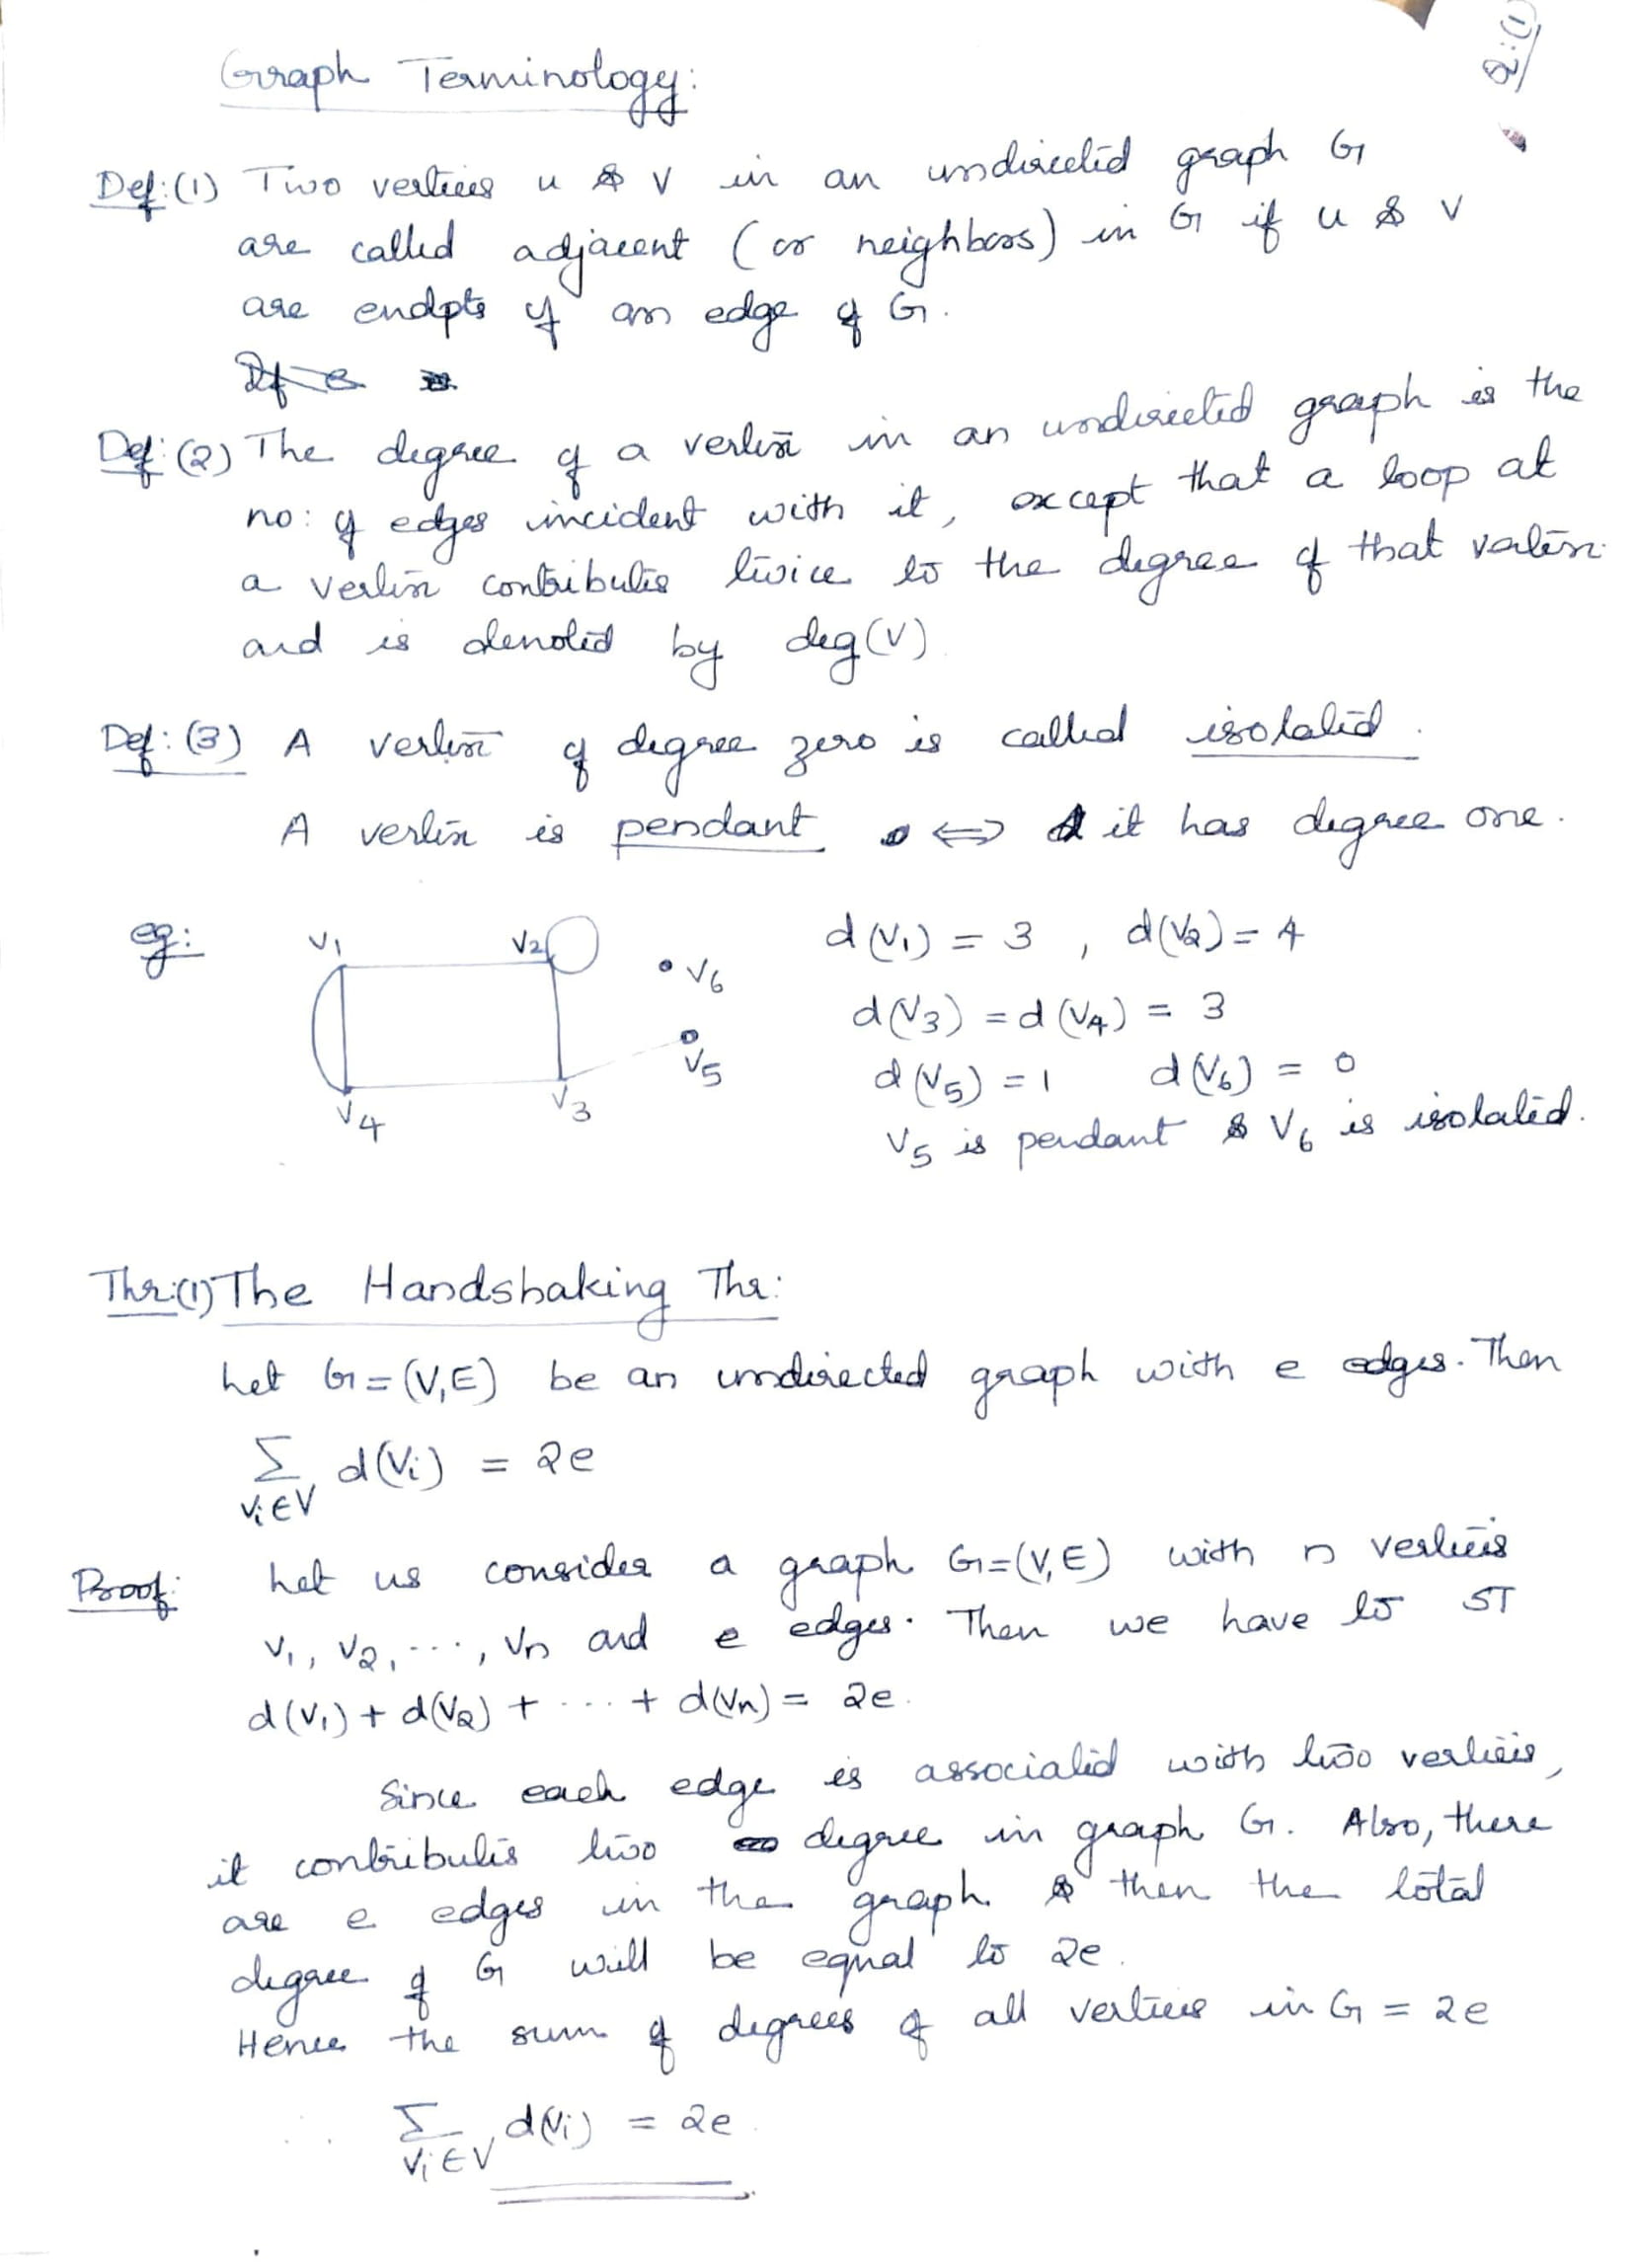 2:(1)
Graph Terminology:
Def:(1) Two vertices u & v in an undirected graph G
are called adjacent (or neighbors) in G if u & v
are endpts of an edge of G.
Def:(2) The degree of a vertex in an undirected graph is the
no: of edges incident with it, except that a loop at
a vertex contributes twice to the degree of that vertex
and is denoted by deg(v)
Def:(3) A vertex of degree zero is called isolated.
A vertex is pendant ⇔ it has degree one.
eg:
V1 V2 V6 V5 V4 V3
d(V1) = 3 , d(V2) = 4
d(V3) = d(V4) = 3
d(V5) = 1 d(V6) = 0
V5 is pendant & V6 is isolated.
Thr:(1) The Handshaking Thr:
Let G = (V,E) be an undirected graph with e edges. Then
∑ d(Vi) = 2e
Vi∈V
Proof: Let us consider a graph G=(V,E) with n vertices
V1, V2, ..., Vn and e edges. Then we have to ST
d(V1) + d(V2) + .... + d(Vn) = 2e.
Since each edge is associated with two vertices,
it contributes two degree in graph G. Also, there
are e edges in the graph & then the total
degree of G will be equal to 2e.
Hence the sum of degrees of all vertices in G = 2e
∴ ∑ d(Vi) = 2e
Vi∈V